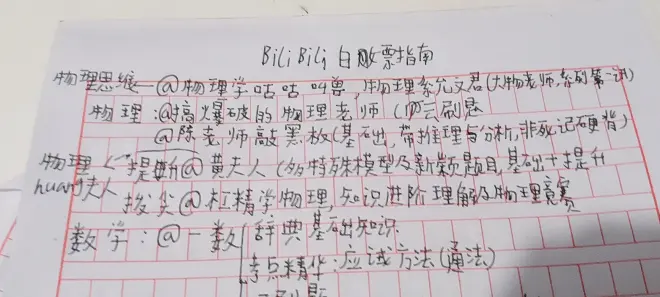 BiliBili 白嫖指南
物理思维—@物理学咕咕叫兽,物理系允文君(大物老师,系列第一讲)
物理:@搞爆破的物理老师(吧云刷题
@陈老师敲黑板(基础,带推理与分析,非死记硬背)
物理 提升@黄夫人(多特殊模型及新颖题目,基础+提升
huang夫人
拔尖@杠精学物理,知识进阶理解及物理竞赛
数学:@一数 辞典基础知识
考点精华:应试方法(通法)
刷题